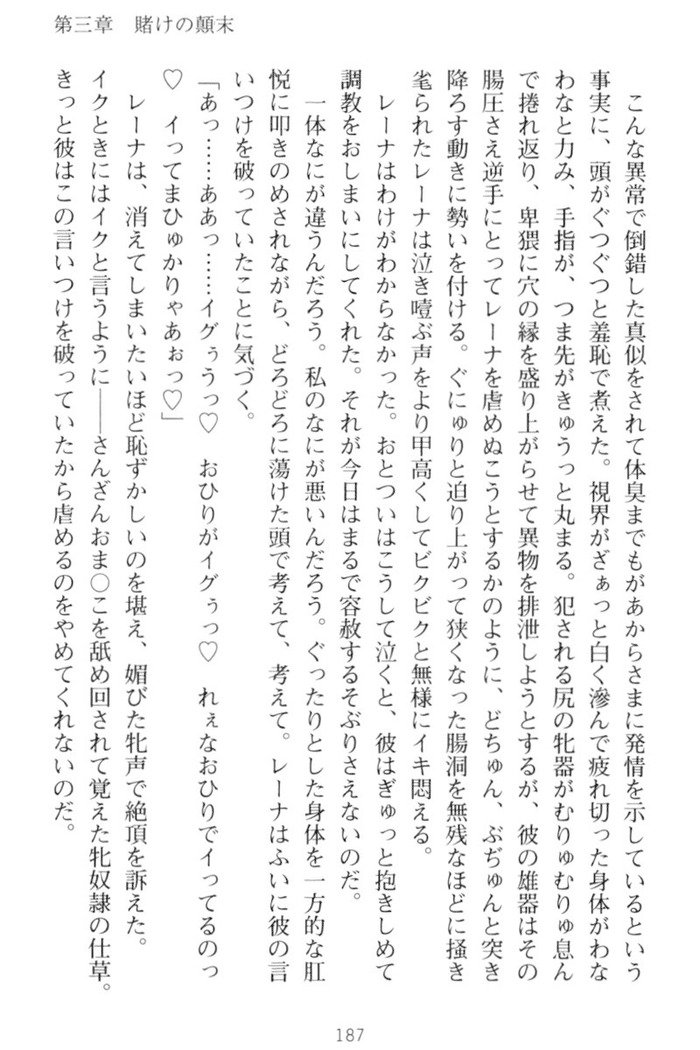 第三章　賭けの顛末
　こんな異常で倒錯した真似をされて体臭までもがあからさまに発情を示しているという
事実に、頭がぐつぐつと羞恥で煮えた。視界がざぁっと白く滲んで疲れ切った身体がわな
わなと力み、手指が、つま先がきゅうっと丸まる。犯される尻の牝器がむりゅむりゅ息ん
で捲れ返り、卑猥に穴の縁を盛り上がらせて異物を排泄しようとするが、彼の雄器はその
腸圧さえ逆手にとってレーナを虐めぬこうとするかのように、どちゅん、ぶぢゅんと突き
降ろす動きに勢いを付ける。ぐにゅりと迫り上がって狭くなった腸洞を無残なほどに掻き
毟られたレーナは泣き噎ぶ声をより甲高くしてビクビクと無様にイキ悶える。
　レーナはわけがわからなかった。おとついはこうして泣くと、彼はぎゅっと抱きしめて
調教をおしまいにしてくれた。それが今日はまるで容赦するそぶりさえないのだ。
　一体なにが違うんだろう。私のなにが悪いんだろう。ぐったりとした身体を一方的な肛
悦に叩きのめされながら、どろどろに蕩けた頭で考えて、考えて。レーナはふいに彼の言
いつけを破っていたことに気づく。
「あっ……ああっ……イグぅうっ♡　おひりがイグぅっ♡　れぇなおひりでイってるのっ
♡　イってまひゅかりゃあぉっ♡」
　レーナは、消えてしまいたいほど恥ずかしいのを堪え、媚びた牝声で絶頂を訴えた。
イクときにはイクと言うように――さんざんおま○こを舐め回されて覚えた牝奴隷の仕草。
きっと彼はこの言いつけを破っていたから虐めるのをやめてくれないのだ。
187